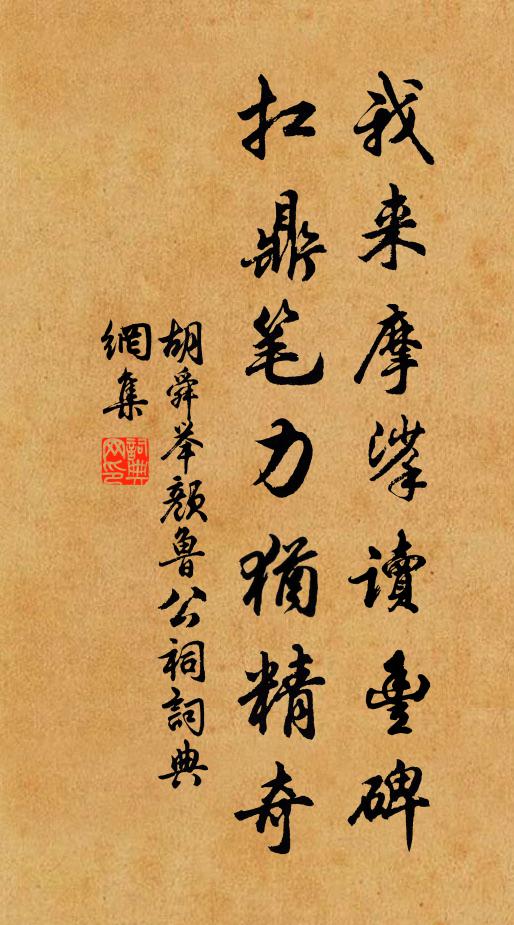 我来摩挲读豊碑
扛鼎笔力犹精奇
胡舜举颜鲁公祠詞典
網集
詞典
网印